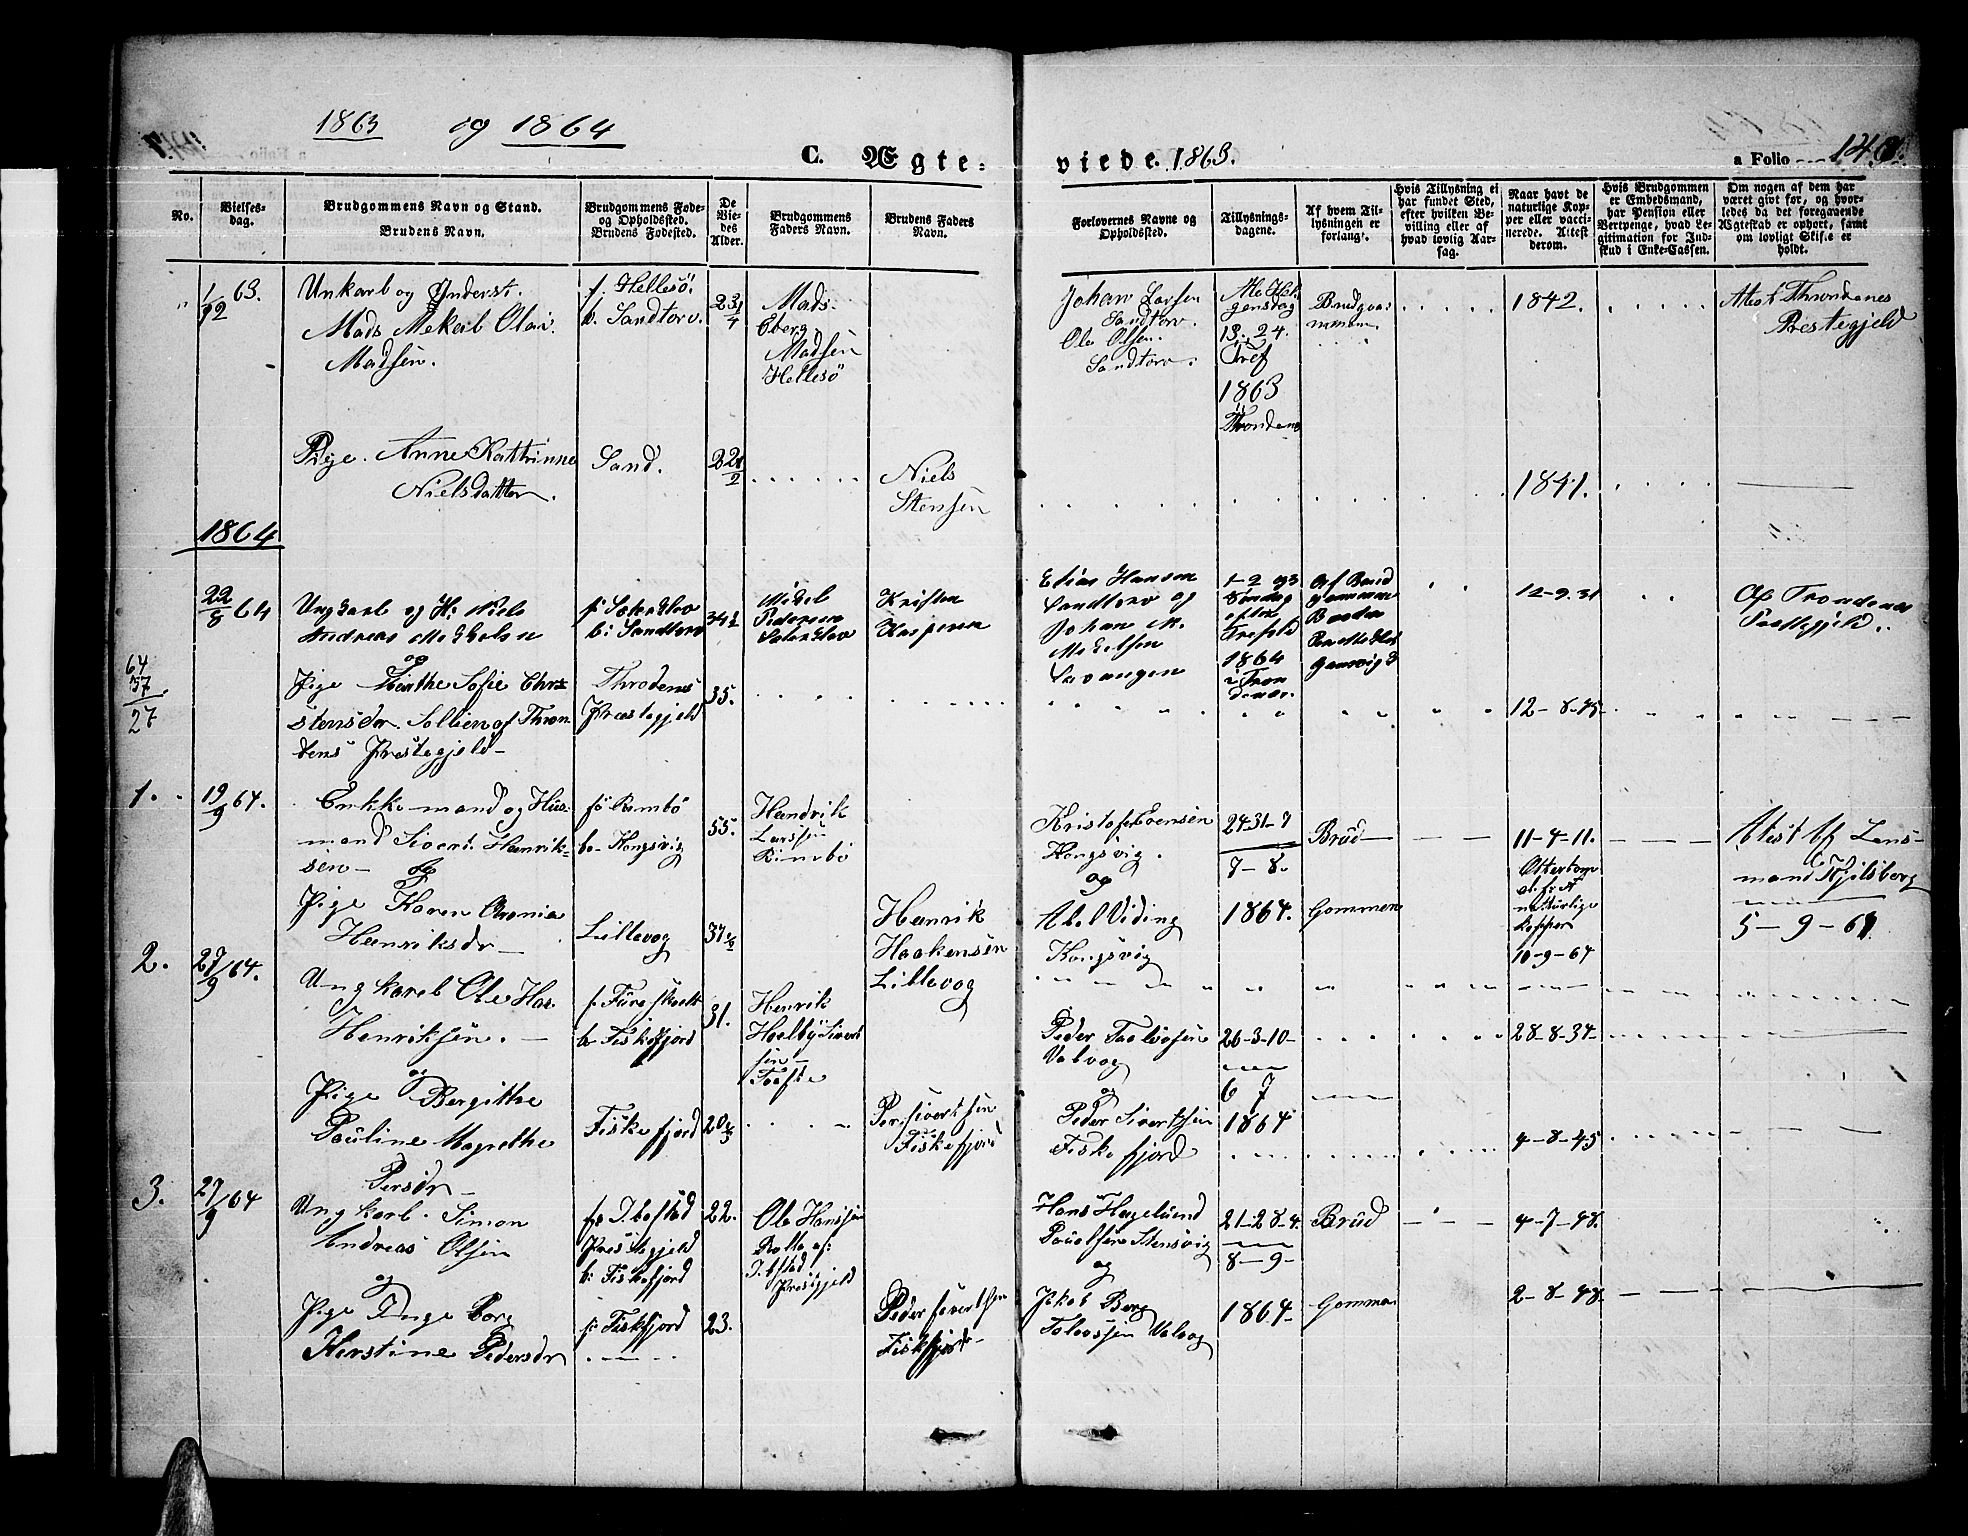 1863 og 1864
C. Ægte=
viede. 1863.
a Folio
No.
Vielses-
dag.
Brudgommens Navn og Stand.
Brudens Navn.
Brudgommens Føde-
og Opholdssted.
Brudens Fødested.
De
Vie-
des
Alder.
Brudgommens
Faders Navn.
Brudens Faders
Navn.
Forlovernes Navne og
Opholdssted.
Tillysnings-
dagene.
Af hvem Til-
lysningen er
forlangt.
Hvis Tillysning ei
har fundet Sted,
efter hvilken Be-
villing eller af
hvad lovlig Aar-
sag.
Naar havt de
naturlige Kop-
per eller vacci-
nerede. Attest
derom.
Hvis Brudgommen
er Embedsmand,
har Pension eller
Vertpenge, hvad Le-
gitimation for Ind-
skud i Enke-Cassen.
Om nogen af dem har
været gift før, og hvor-
ledes da det foregaaende
Ægteskab er ophørt, samt
om lovligt Skifte er
holdt.
1/12 63.
Unkarl og Inderst.
Mads Mekael Olai
Madsen.
f. Hellesö.
b. Sandtorv.
23 1/4
Mads
Eberg
Madsen
Hellesö
Johan Larsen
Sandtorv.
Ole Olsen.
Sandtorv.
13. 24.
Tref
1863
Throndenes
Brudgom
1842.
Atest Throndenes
Prestegjeld
Pige. Anne Kathrinne
Nielsdatter.
Sand.
22 1/2
Niels
Stensen
1841.
1864
22/8 64
Ungkarl og H: Niels
Andreas Mekkelsen
og
f:
b: Sandtorv
34 1/2
Mikel
Pedersen
Kristen
Kaspersen
Elias Hansen
Sandtorv og
Johan M.
Mekelsen
Savangen
1-2 og 3
Söndag
efter
Trefold
1864
i Tron
denæs.
Af Brud
gommen
Bruden
12-9. 31
Af Trondenes
Prestegjeld.
64
37
27
Pige Birthe Sofie Chri
stensdr Sollien af Thron
dens Prestegjeld-
Throdens
Prestegjeld
35.
12-8-45-
1. 19/9 64.
Enkkemand og Hus
mand Sivert Henrik-
sen- og
fö Rembö
bo- Kongsvig
55.
Hendrik
Larssen
Rimbö
Kristofer Evensen
Kongsvig.
og
24-31-7
7-8.
Brud-
11-4-11.
Atest Af Lens-
mand Kjilsberg
5-9-64
Pige Karen Onania
Henriksdr-
Lillevog
37 1/2
Henrik
Haakensen
Lillevog
Abel Viding
Kongsvig
1864.
Gommen
naturlige
kopper
10-9-64
2. 27/9 64.
Ung karl Ole Has
Henriksen.-
og
b: Fiskefjord
31.
Henrik
Sivert
sen-
Tofte
Peder Taalofsen
Valvog
og
26-3-10-
6 7
28-8-34-
Pige Bergitthe
Pauline Magrethe
Persdr-
Fiskefjord
20 2/3
Per sivertsen
Fiskefjord
Peder Sivertsen
Fiskefjord
1864
4-8-45
3. 27/9 64
Ung karl. Simon
Andreas Olsen
og
fö Ibestad
Prestegjeld
b: Fiskefjord
22.
Ole Hanssen
Rolla af:
Ibestad
Prestgjeld
Hans Hagelund
Paulsen Stensvig
og
21-28-4.
8-9-
Brud
4-7-48.
Pige Inge Borg
Kirstine Pedersdr
f: Fiskfjord
23.
Peder siverthsen
Fiskfjord-
Jakob Berg
Tolovssen Valvog
1864-
Gommen
2-8-48.